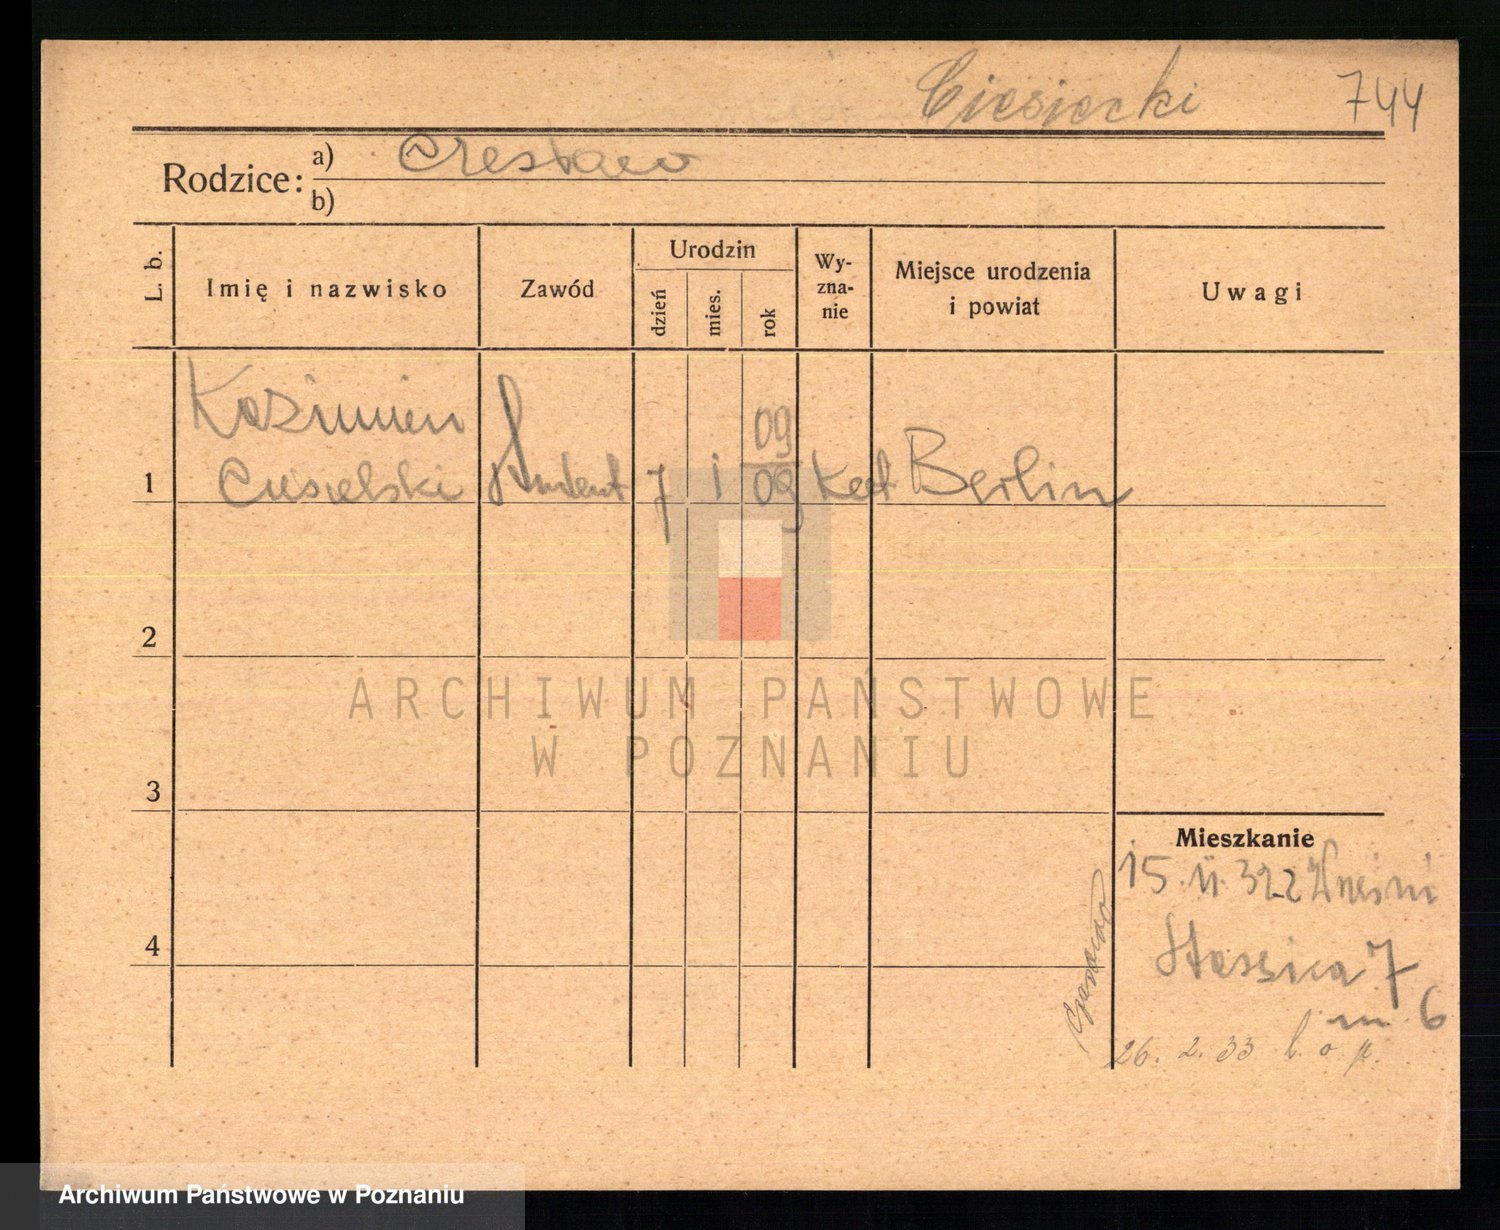 Ciesiecki 744
Rodzice:
a) Czesław
b)
L. b.
Imię i nazwisko
Zawód
Urodzin
dzień
mies.
rok
Wy-
zna-
nie
Miejsce urodzenia
i powiat
Uwagi
Kazimierz
09
1 Ciesielski student 7 1 09 kat Berlin
2
ARCHIWUM PAŃSTWOWE
W POZNANIU
3
Mieszkanie
15. 11. 32 z Wrześni
4
Stassica 7
m 6
26. 2. 33
Archiwum Państwowe w Poznaniu